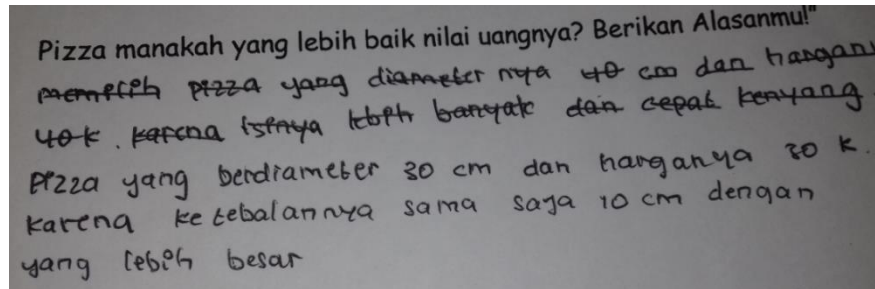 Pizza manakah yang lebih baik nilai uangnya? Berikan Alasanmu!"
memelih pizza yang diameter nya 40 cm dan hargany
40 k. karena isinya lebih banyak dan cepat kenyang
Pizza yang berdiameter 30 cm dan harganya 30 k.
karena ketebalannya sama saja 10 cm dengan
yang lebih besar